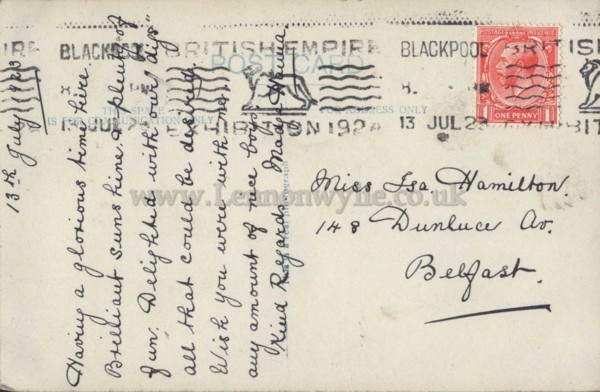 BLACKPOOL BRITISH EMPIRE BLACKPOOL BRITISH
POST CARD
POSTAGE REVENUE
ONE PENNY
THE SPACE
IS FOR COMMUNICATION ONLY
FOR ADDRESS ONLY
13 JUL 23 EXHIBITION 1924 13 JUL 23
www.Lennonwylie.co.uk
13th July 1923
Having a glorious time here.
Brilliant sunshine & plenty of
fun. Delighted with our "digs"
all that could be desired.
Wish you were with us.
any amount of nice boys
Kind Regards.
Miss Isa Hamilton.
148 Dunluce Av.
Belfast.